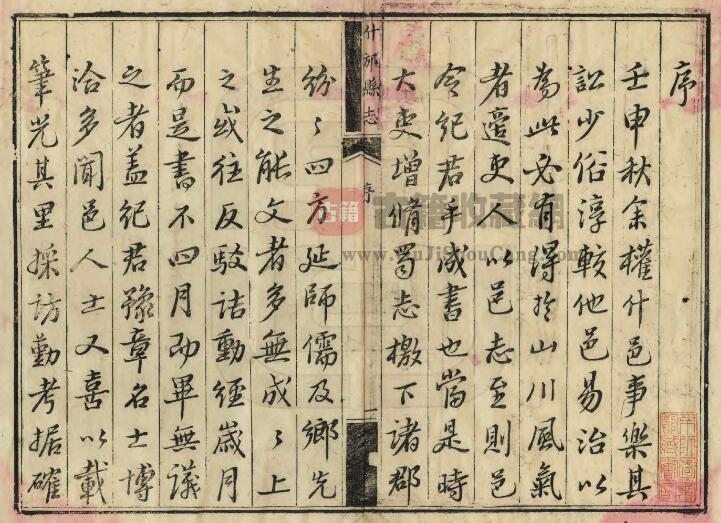 序
壬申秋余權什邑事樂其
訟少俗淳較他邑易治以
為此必有得於山川風氣
者邉吏人以邑志至則邑
令紀君手成書也當是時
大吏增脩蜀志檄下諸郡
什邡縣志
序
一
紛々四方延師儒及鄉先
生之能文者多無成々上
之或往反駁詰動經歲月
而是書不四月而畢無議
之者蓋紀君豫章名士博
洽多聞邑人士又喜以載
筆光其里採訪勤考据確
古籍
古籍收藏網
www.GuJiShouCang.com